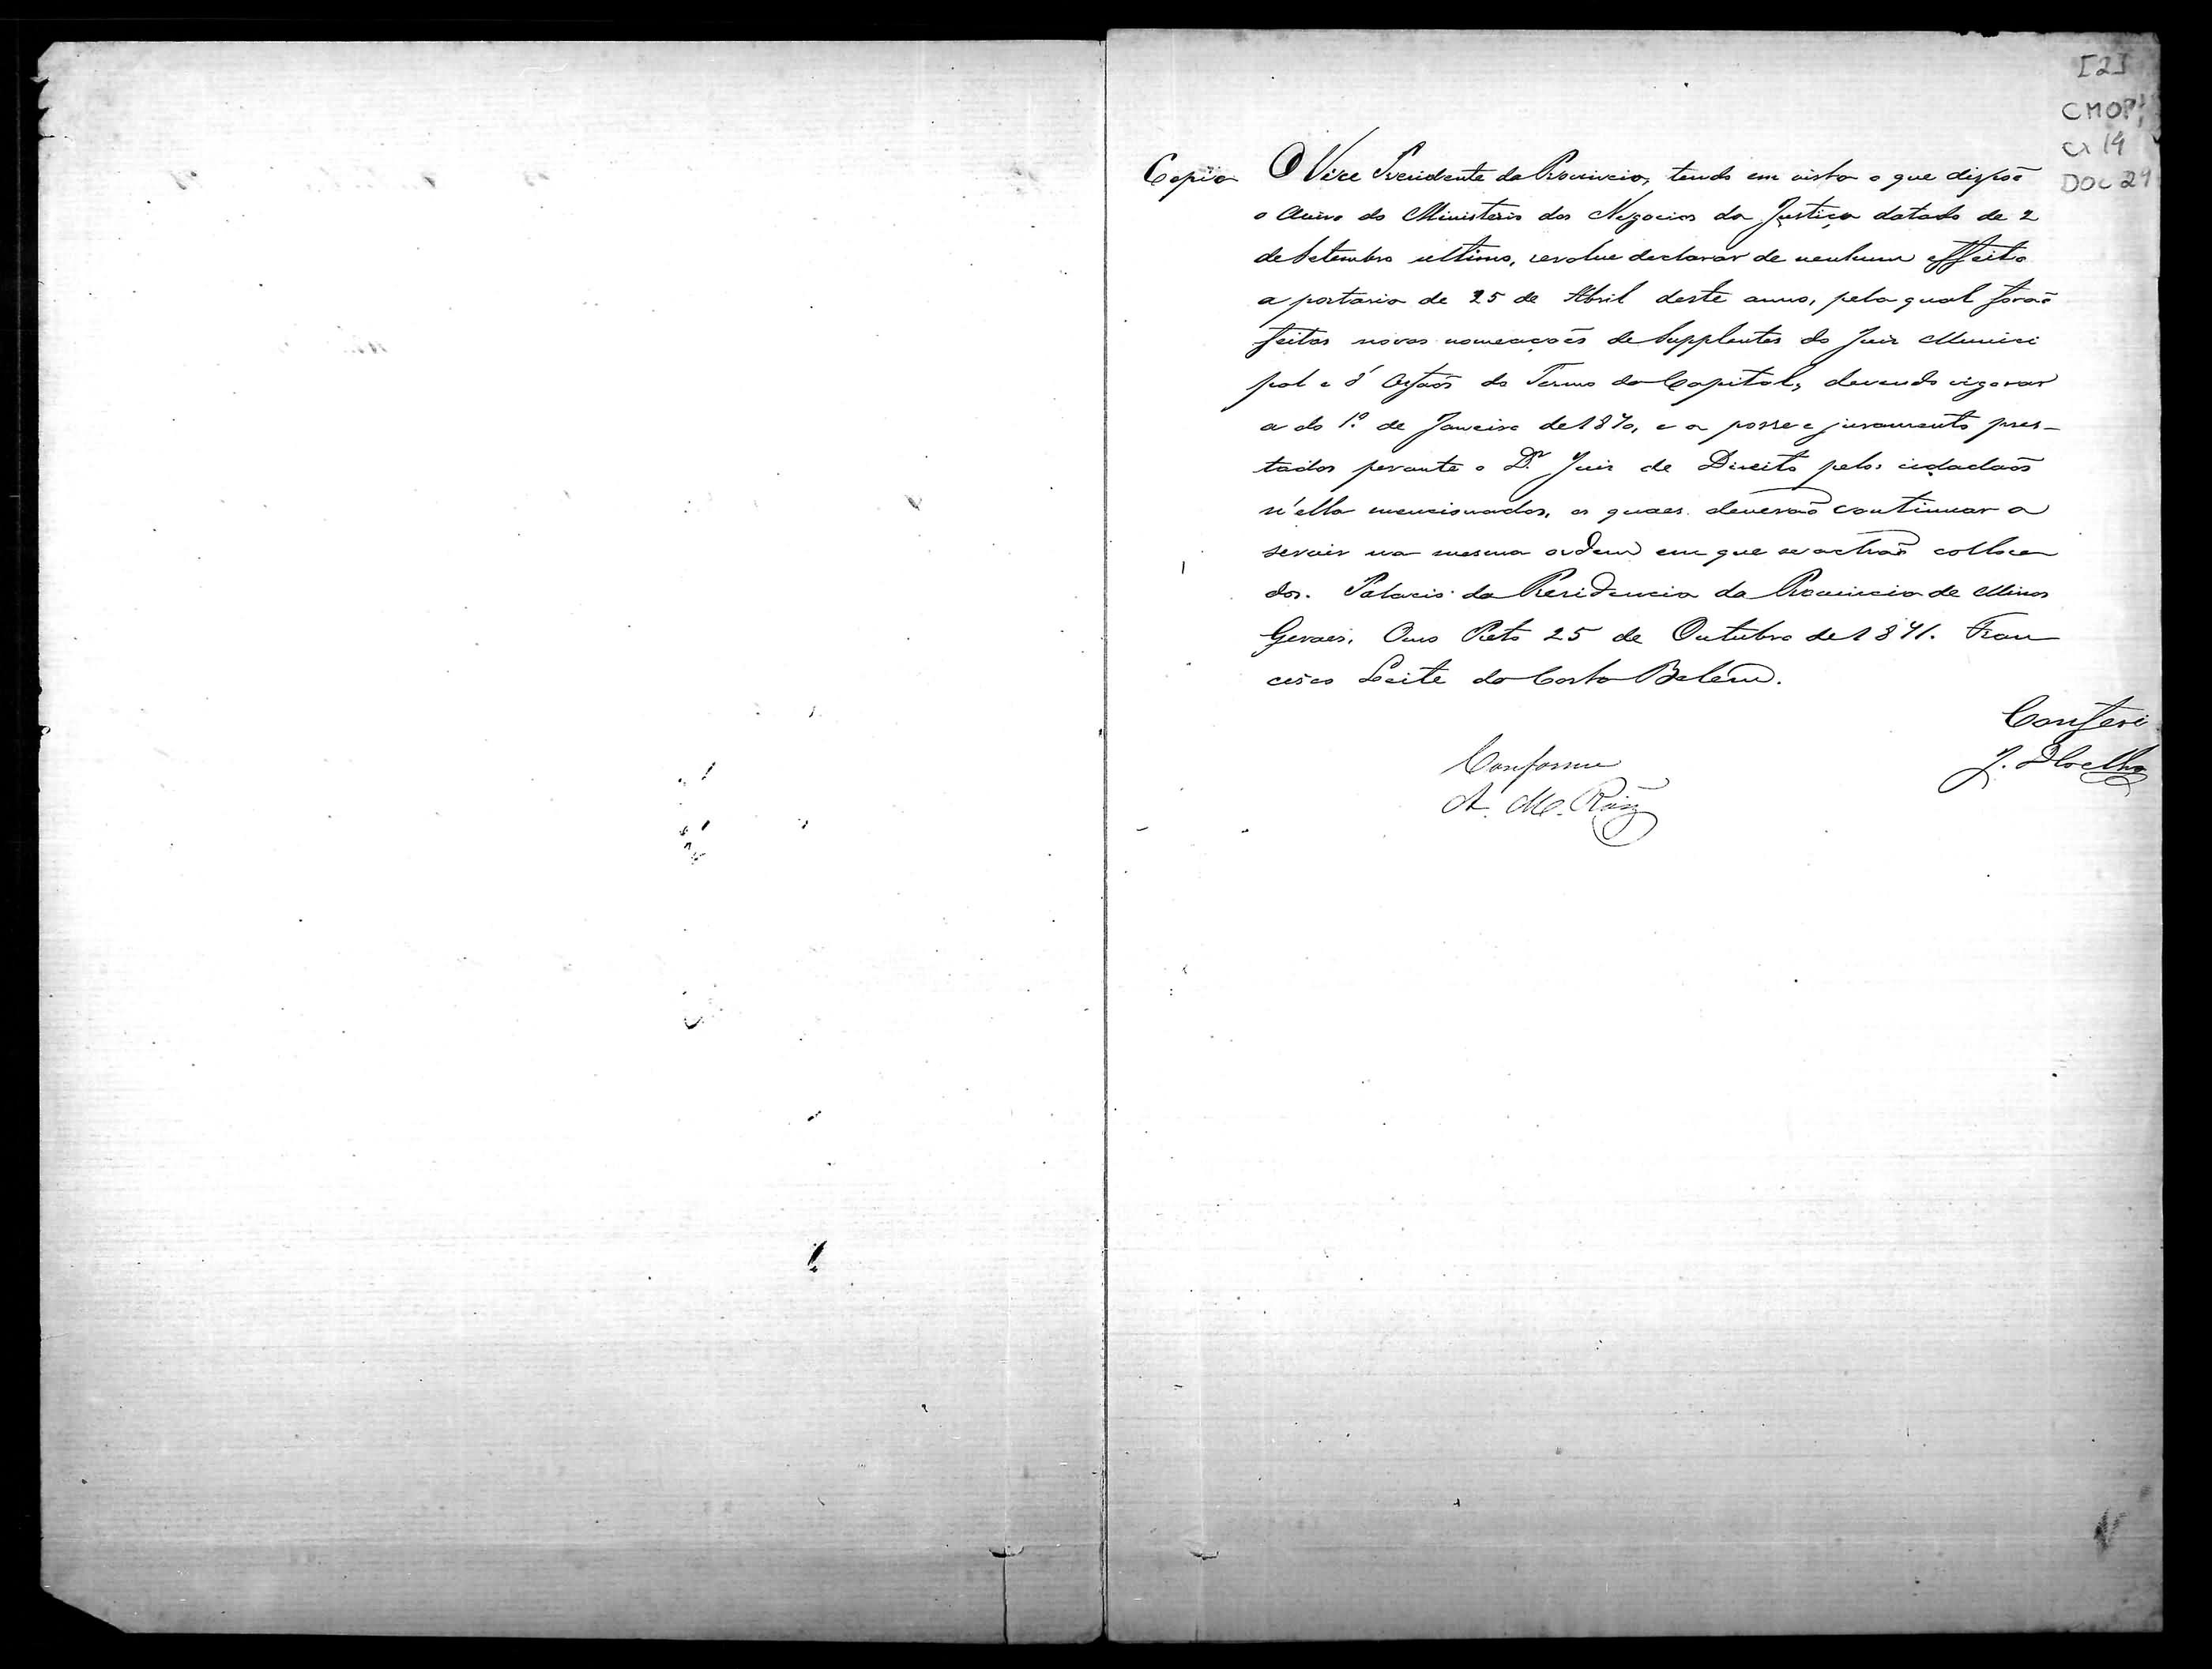 [2]
CMOP;
Cx 14
DOC 29
Copia O Vice Presidente da Provincia, tendo em vista o que dispõe
o Aviso do Ministerio dos Negocios da Justiça datado de 2
de Setembro ultimo, resolve declarar de nenhum effeito
a portaria de 25 de Abril deste anno, pela qual forão
feitas novas nomeações de Supplentes do Juiz Munici
pal e d'Orfaõs do Termo da Capital, devendo vigorar
a do 1º de Janeiro de 1870, e a posse e juramento pres-
tados perante o Dr Juiz de Direito pelos cidadaõs
n'ella mencionados, os quaes deveraõ continuar a
servir na mesma ordem em que se achaõ colloca
dos. Palacio da Presidencia da Provincia de Minas
Geraes, Ouro Preto 25 de Outubro de 1871. Fran
cisco Leite da Costa Belem.
Conferi
J. Coelho
Conforme
A. M.